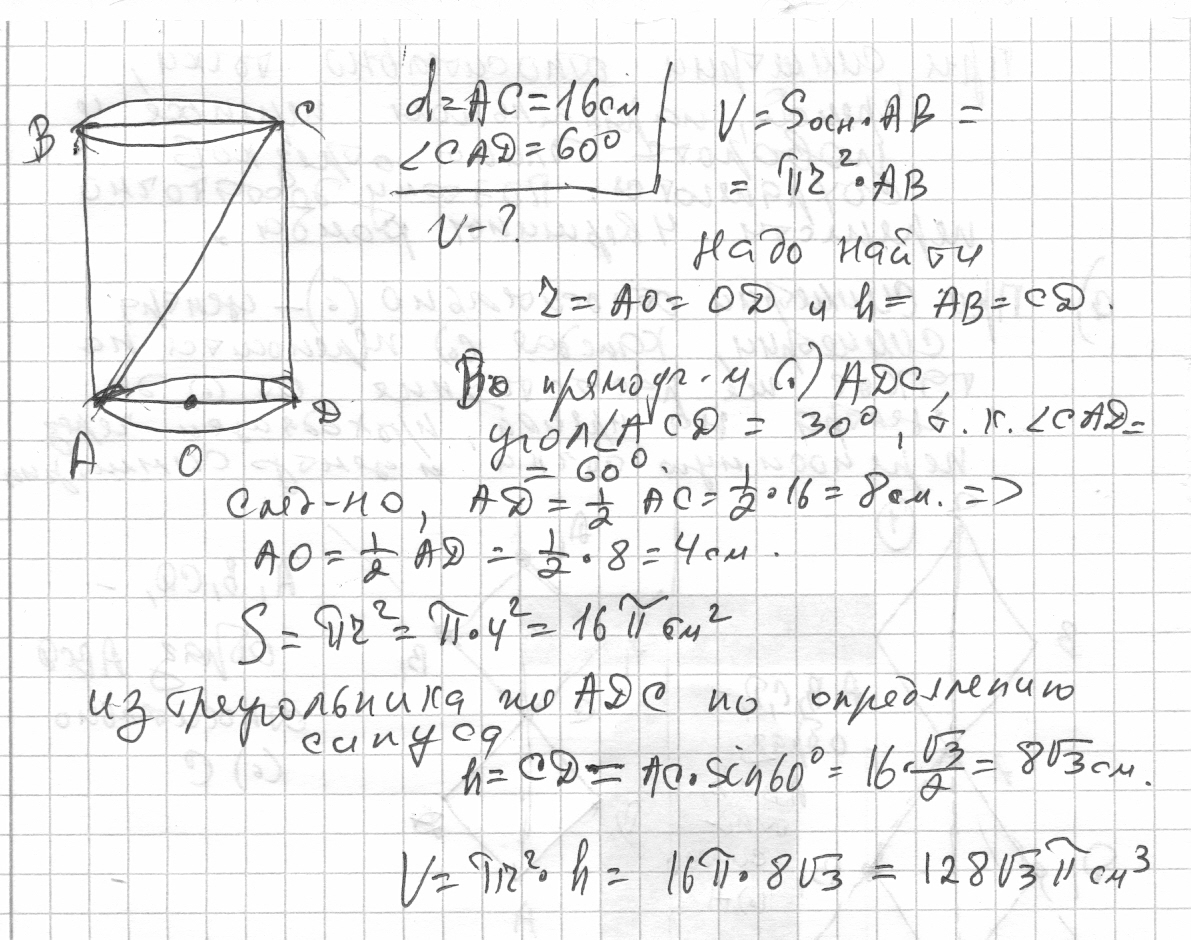 B
C
A
O
D
d=AC=16см
∠CAD=60°
V-?
V=Sосн.·AB=
=πr²·AB
Надо найти
r=AO=OD и h=AB=CD.
Во прямоуг-м (.) ADC,
угол∠ACD=30°, т.к. ∠CAD=
=60°.
След-но, AD=1/2 AC=1/2·16=8см. =>
AO=1/2 AD=1/2·8=4см.
S=πr²=π·4²=16π см²
из треугольника ADC по определению
синуса
h=CD=AC·sin60°=16·√3/2=8√3см.
V=πr²·h=16π·8√3=128√3π см³